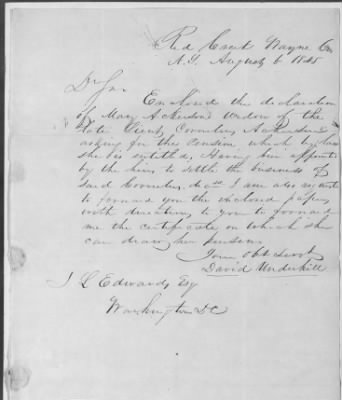 Red Creek Wayne Co
N.Y. August 6 1845
Dr Sir
Enclosed the declaration
of Mary Ackerson Widow of the
late Lieut Cornelius Ackerson
asking for the Pension which by law
she is entitled, Having been appointed
by the heirs to settle the business of
said Cornelius, decd I am also
to forward you the enclosed papers
with directions to you to forward
me the certificate on which she
can draw her pension
Your Obt Servt
David Underhill
J L Edwards, Esq
Washington DC